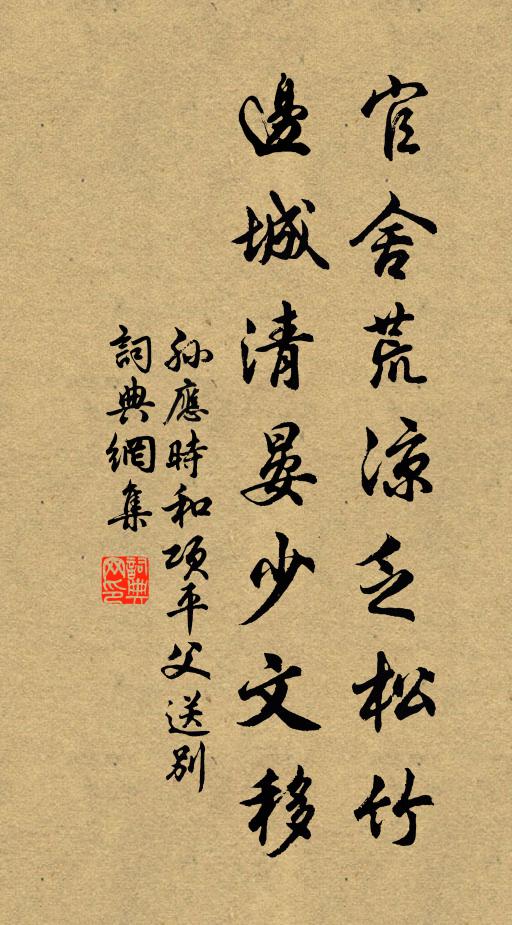 官舍荒涼乏松竹
邊城清晏少文移
孫應時和項平父送別
詞典網集
詞典網印